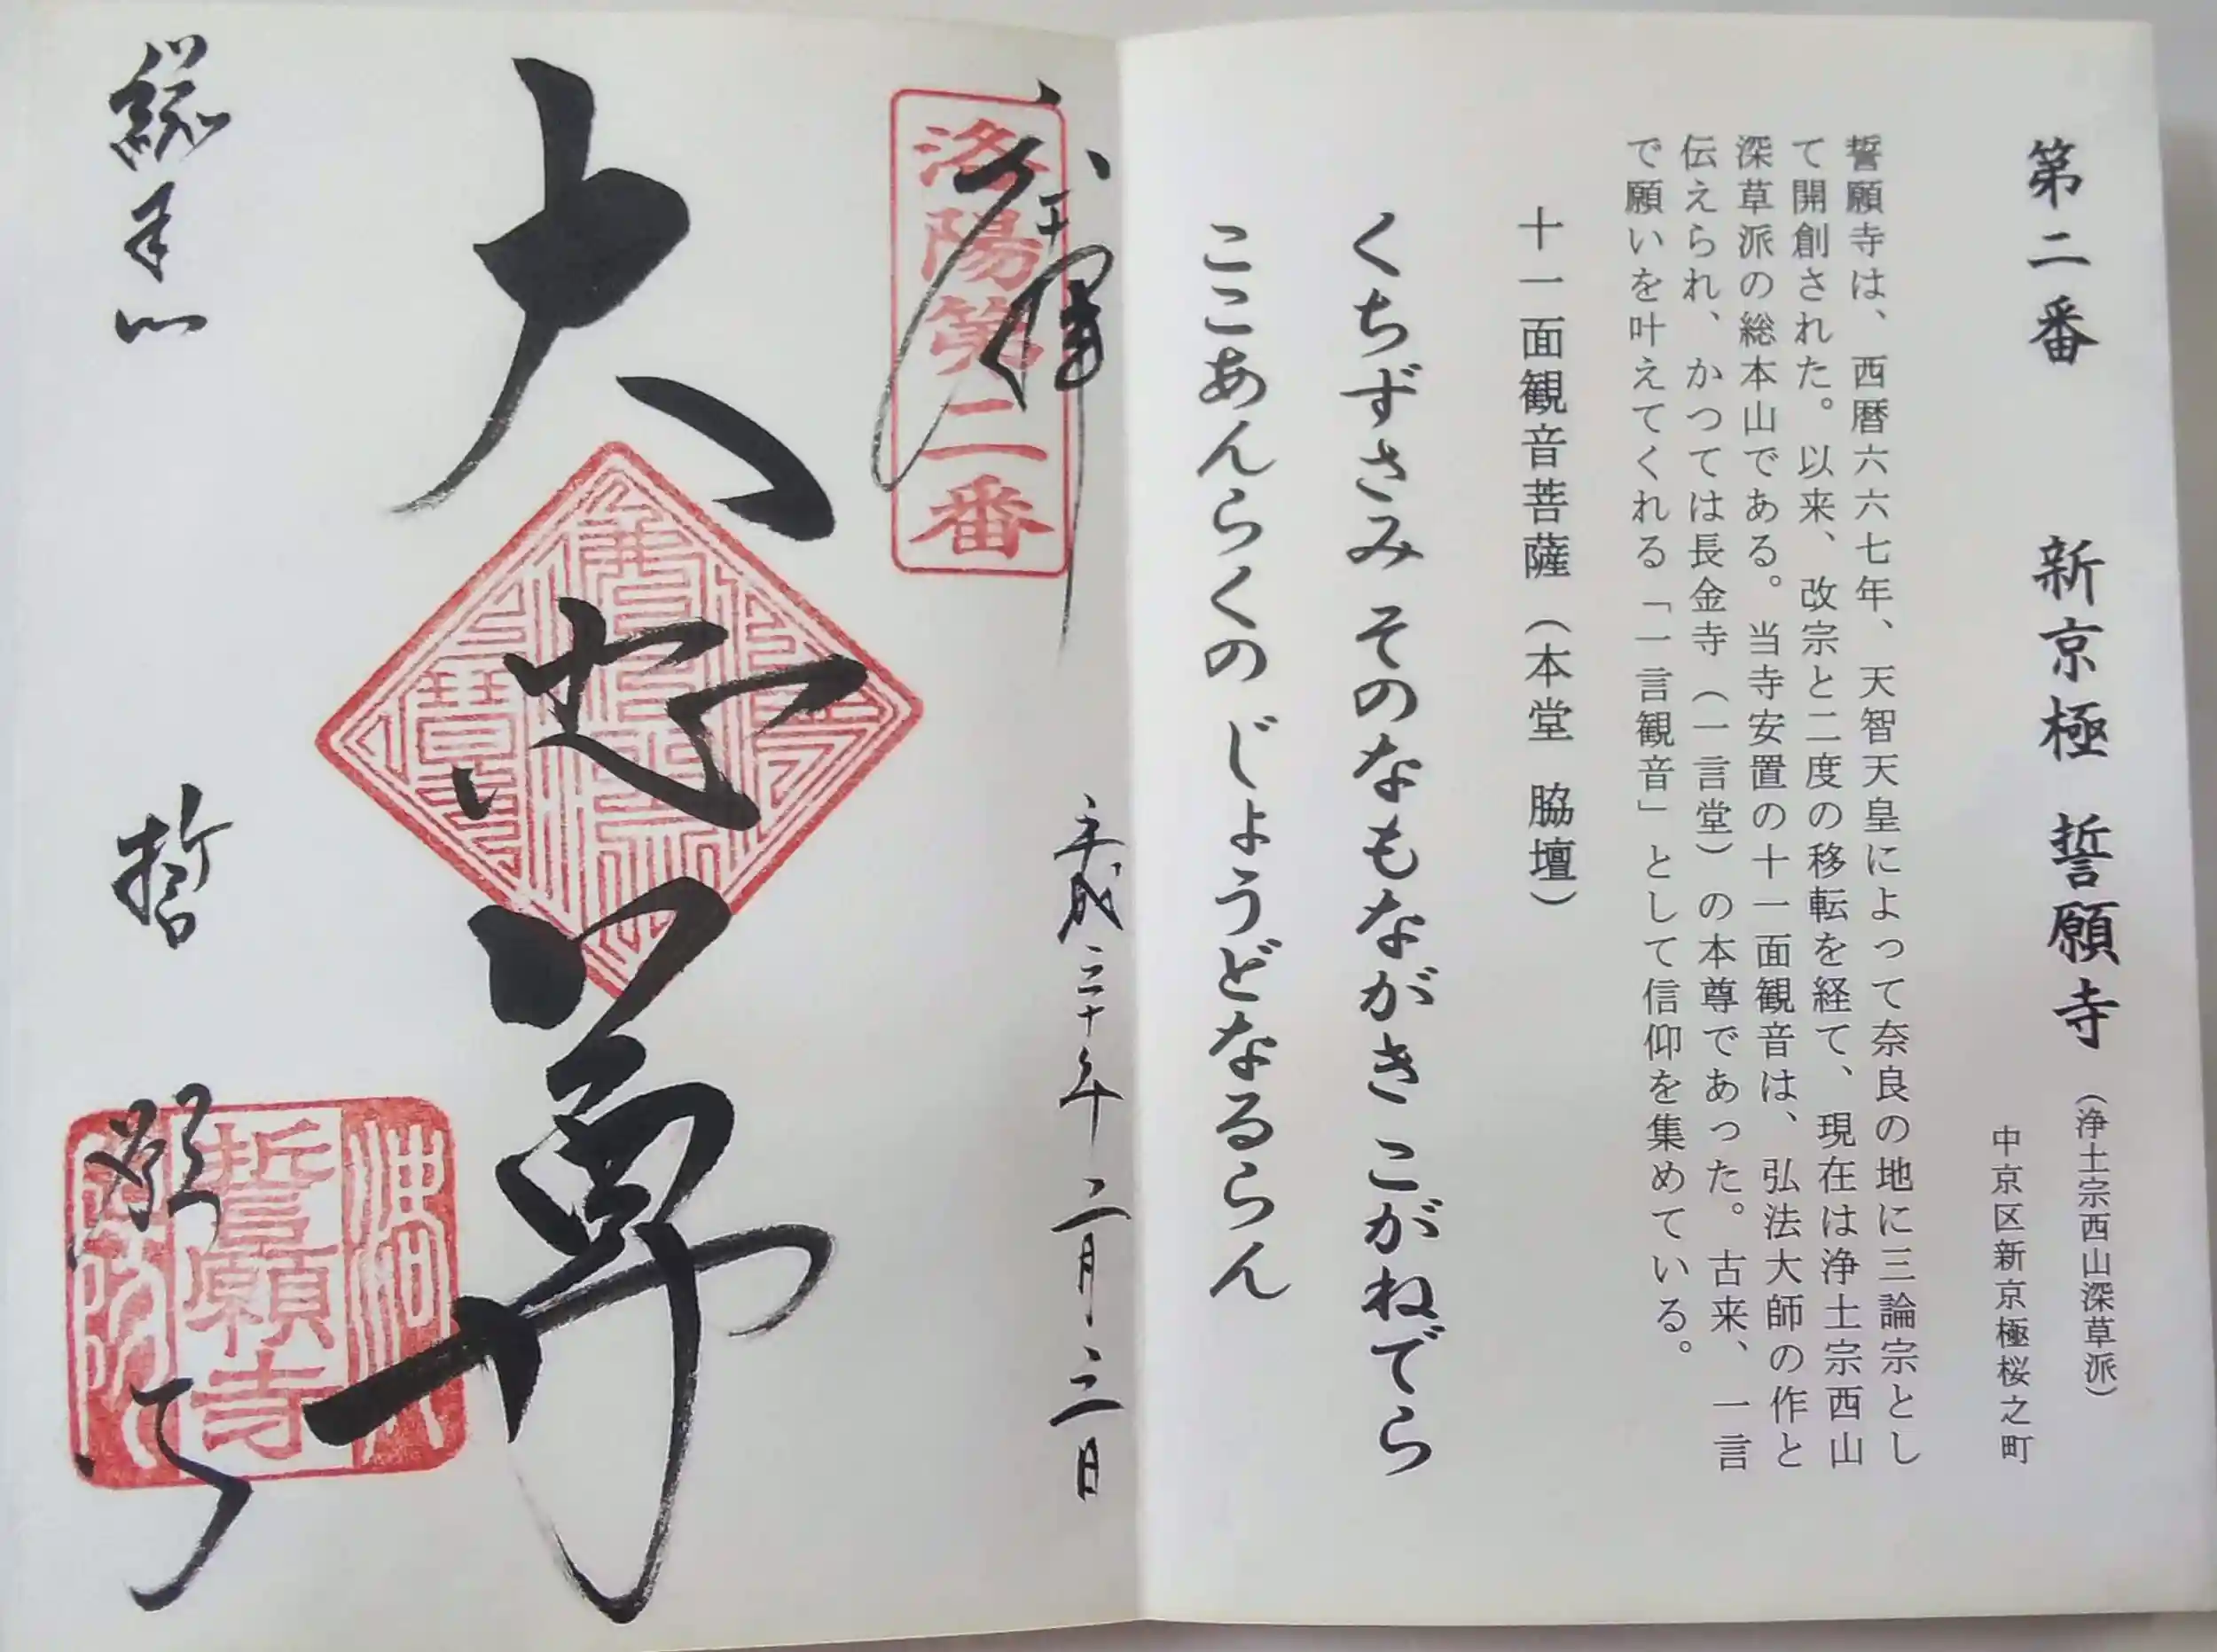 第二番　新京極　誓願寺（浄土宗西山深草派）
中京区新京極桜之町
誓願寺は、西暦六六七年、天智天皇によって奈良の地に三論宗とし
て開創された。以来、改宗と二度の移転を経て、現在は浄土宗西山
深草派の総本山である。当寺安置の十一面観音は、弘法大師の作と
伝えられ、かつては長金寺（一言堂）の本尊であった。古来、一言
で願いを叶えてくれる「一言観音」として信仰を集めている。
十一面観音菩薩（本堂　脇壇）
くちずさみ そのなもながき こがねでら
ここあんらくの じょうどなるらん
奉拝
洛陽第二番
平成三十年二月三日
大悲尊
総本山　誓願寺
誓願寺